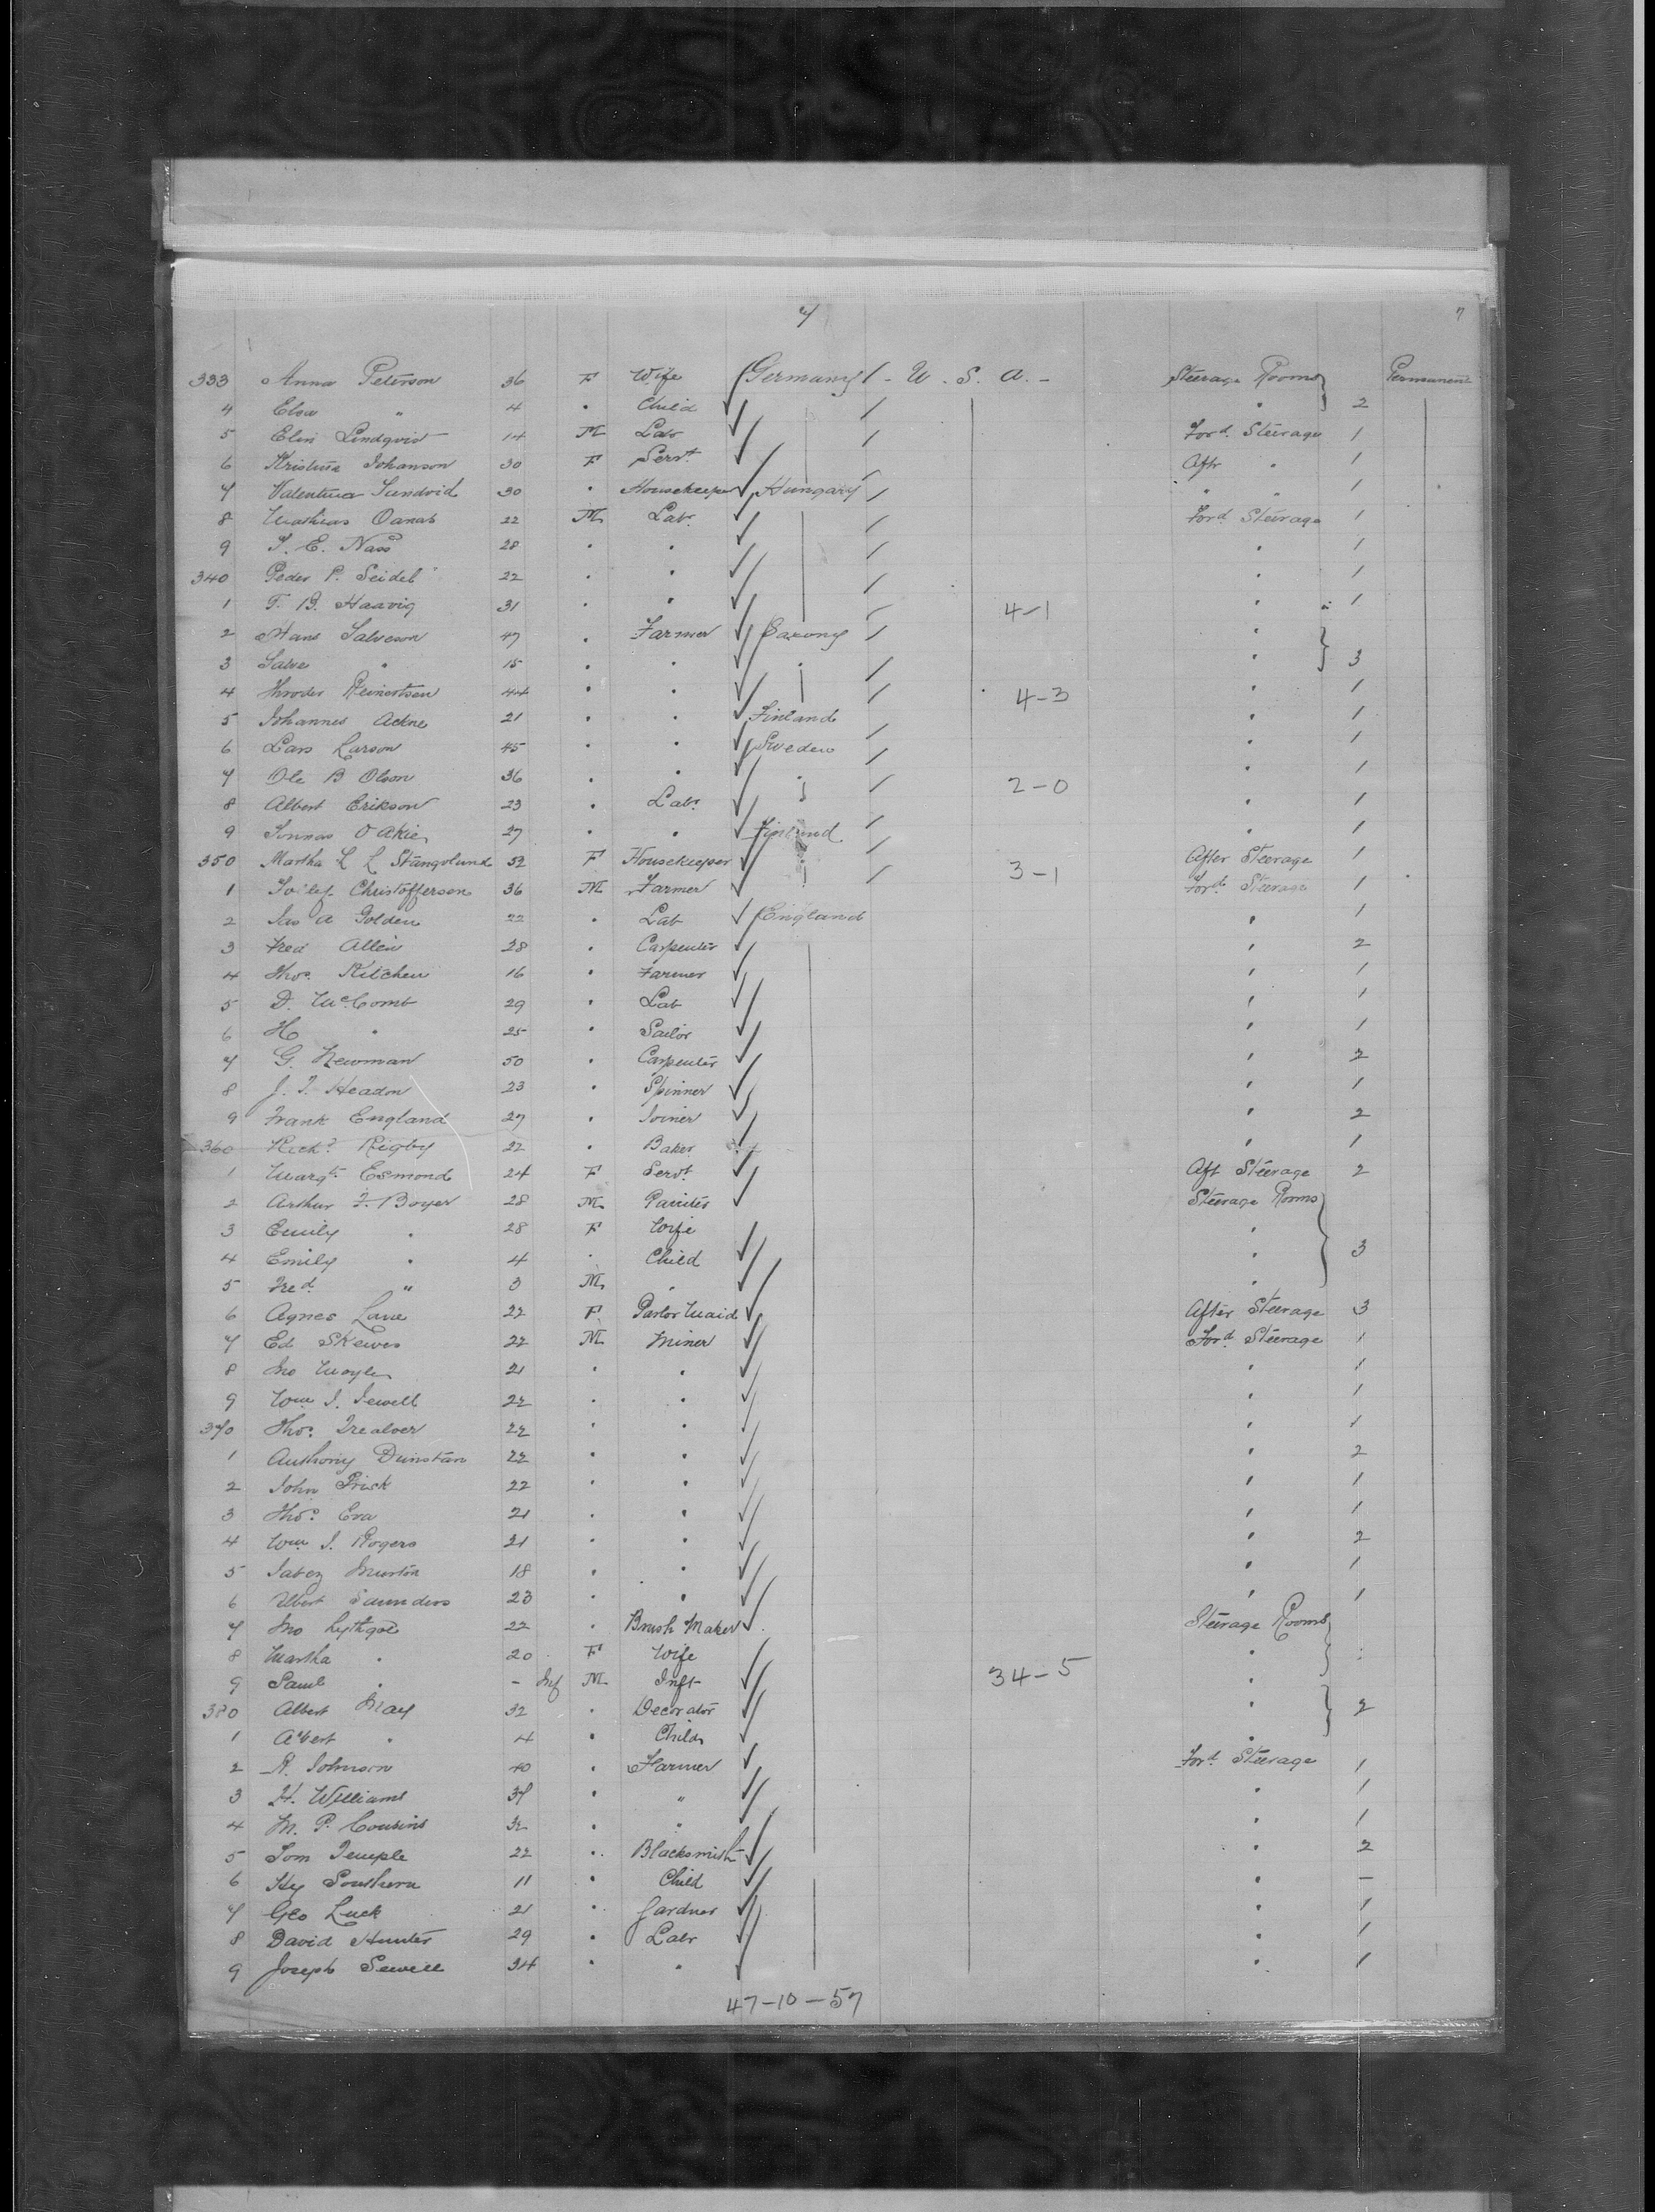 7 7
333 Anna Peterson 36 F Wife Germany - U. S. A. - Steerage Rooms Permanent
4 Elsa " 4 " Child " 2
5 Elin Lindqvist 14 M Lab Ford. Steerage 1
6 Kristina Johanson 30 F Servt. Aftr " 1
7 Valentina Sandvid 30 " Housekeeper Hungary " " 1
8 Mathias 22 M Labr. Ford. Steerage 1
9 E. Nass 28 " " " 1
340 Peder P. Seidel 22 " " " 1
1 T. B. Haavig 31 " " 4-1 " 1
2 Hans Salveson 47 " Farmer Saxony "
3 Salve " 15 " " " " 3
4 Reinertsen 44 " " 4-3 " 1
5 Johannes 21 " " Finland " 1
6 Lars Larson 45 " " Sweden " 1
7 Ole B Olson 36 " " " 2-0 " 1
8 Albert Erikson 23 " Labr. " 1
9 27 " " Finland " 1
350 Martha L L 32 F Housekeeper After Steerage 1
1 Christofferson 36 M Farmer 3-1 Ford. Steerage 1
2 Jas A Golden 22 " Lab England " 1
3 Fred Allen 28 " Carpenter " 2
4 Thos. Kitchen 16 " Farmer " 1
5 D. McComb 29 " Lab " 1
6 H " 25 " Sailor " 1
7 G. Newman 50 " Carpenter " 2
8 J. T. Headon 23 " Spinner " 1
9 Frank England 27 " Joiner " 2
360 Richd. Rigby 22 " Baker " 1
1 Margt. Esmond 24 F Servt. Aft Steerage 2
2 Arthur F. Boyer 28 M Painter Steerage Rooms
3 Emily " 28 F Wife "
4 Emily " 4 " Child " 3
5 Fred. " 3 M " "
6 Agnes Lane 22 F Parlor Maid After Steerage 3
7 Ed Skewes 22 M Miner Ford. Steerage 1
8 Jno Moyle 21 " " " 1
9 Wm J. Jewell 22 " " " 1
370 Thos. 22 " " " 1
1 Anthony Dunstan 22 " " " 2
2 John Prisk 22 " " " 1
3 Thos. Eva 21 " " " 1
4 Wm J. Rogers 21 " " " 2
5 Jabez 18 " " " 1
6 Albert Saunders 23 " " " 1
7 Jno Lythgoe 22 " Brush Maker Steerage Rooms
8 Martha " 20 F Wife "
9 Saml " - Inf M Inft 34-5 "
380 Albert May 32 " Decorator " 2
1 Albert " 4 " Child "
2 R. Johnson 40 " Farmer Ford. Steerage 1
3 H. Williams " " " 1
4 M. P. Cousins 32 " " " 1
5 Tom Temple 22 " Blacksmith " 2
6 Hy Southern 11 " Child " -
7 Geo Luck 21 " Gardner " 1
8 David Hunter 29 " Labr " 1
9 Joseph Sewell 34 " " " 1
47-10-57